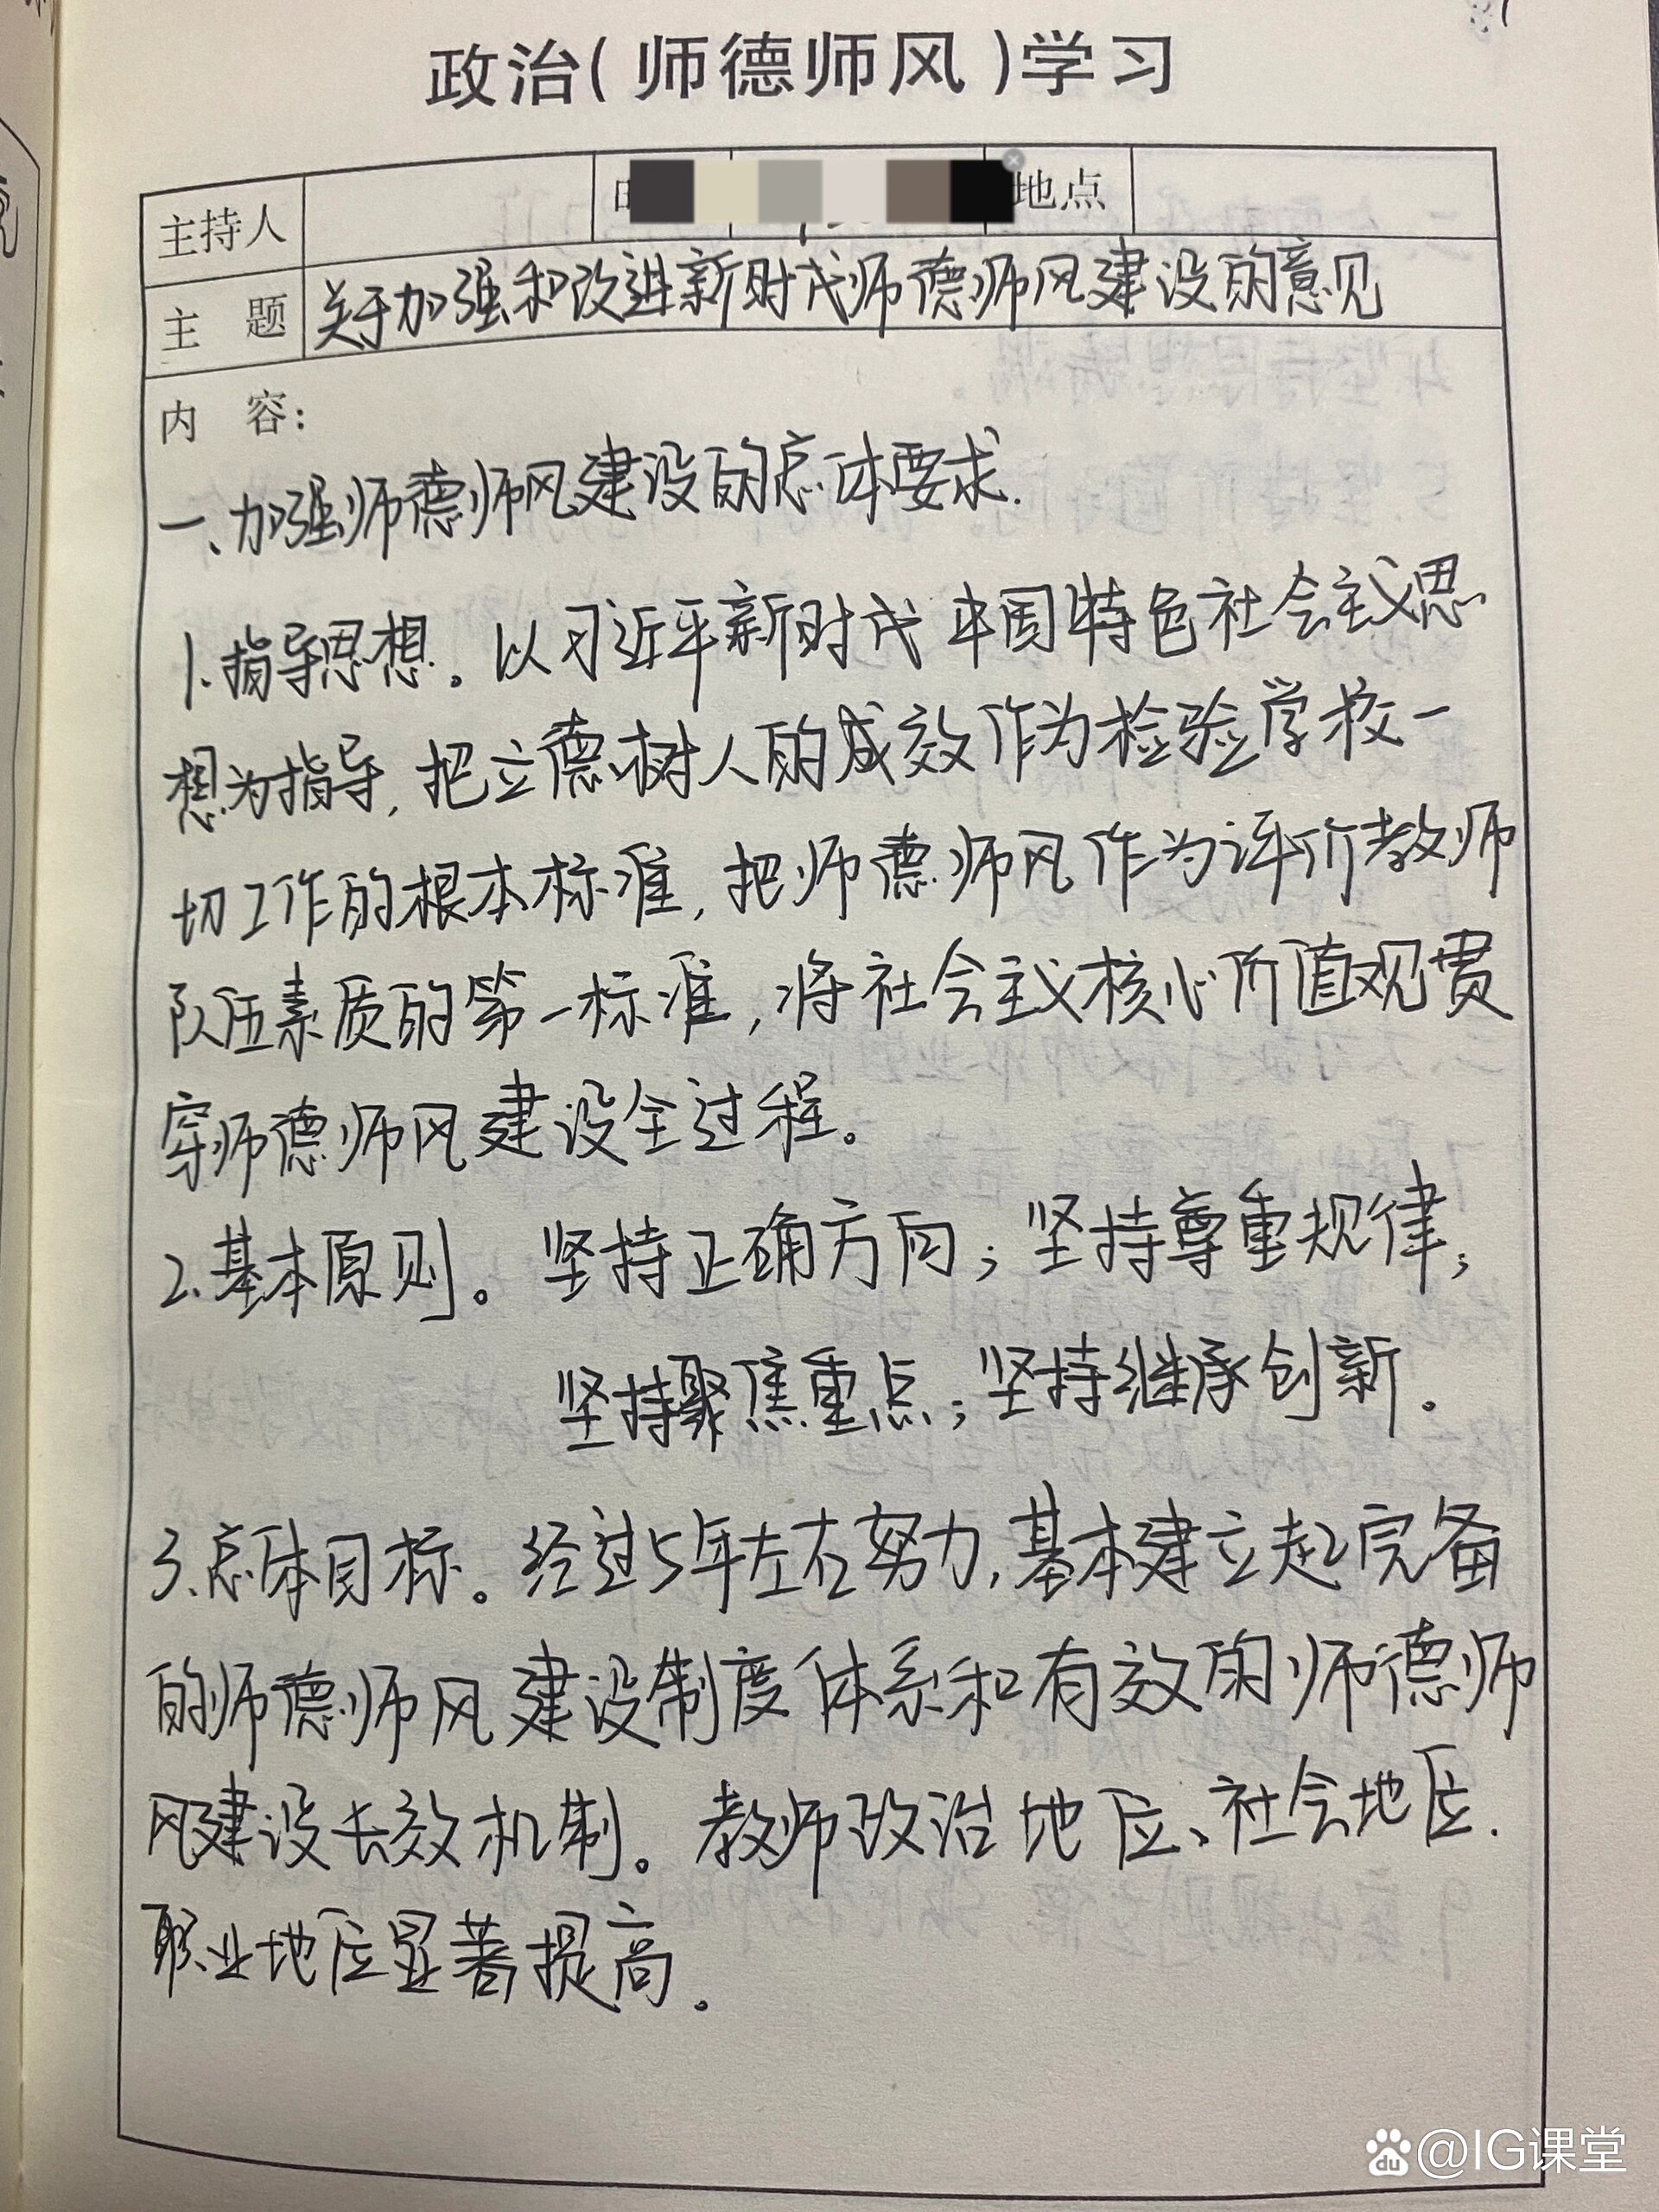 政治(师德师风)学习
主持人 地点
主 题 关于加强和改进新时代师德师风建设的意见
内 容:
一、加强师德师风建设的总体要求.
1.指导思想。以习近平新时代中国特色社会主义思
想为指导,把立德树人的成效作为检验学校一
切工作的根本标准,把师德师风作为评价教师
队伍素质的第一标准,将社会主义核心价值观贯
穿师德师风建设全过程。
2.基本原则。坚持正确方向;坚持尊重规律;
坚持聚焦重点;坚持继承创新.
3.总体目标。经过5年左右努力,基本建立起完备
的师德师风建设制度体系和有效的师德师
风建设长效机制。教师政治地位、社会地位.
职业地位显著提高.
du @IG课堂